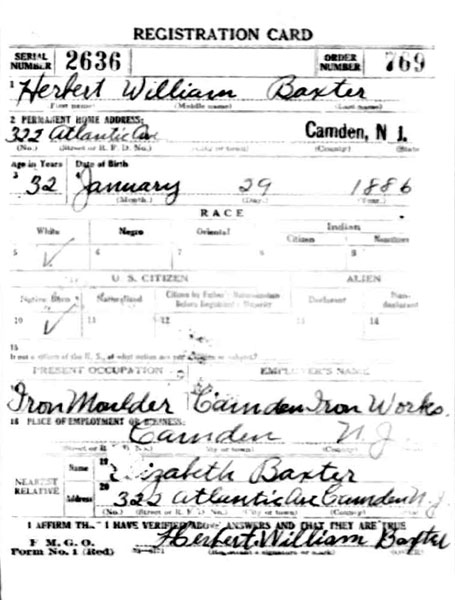 REGISTRATION CARD
SERIAL NUMBER 2636 ORDER NUMBER 769
1 Herbert William Baxter
First name) (Middle name) (Last name)
2 PERMANENT HOME ADDRESS:
322 Atlantic Ave Camden, N J.
(No.) (Street or R. F. D. No.) (City or town) (County) (State
Age in Years Date of Birth
3 32 January 29 1886
(Month.) (Day.) (Year.)
RACE
White Negro Oriental Indian
Citizen Noncitizen
5 ✓ 6 7 8 9
U. S. CITIZEN ALIEN
Native Born Naturalized Citizen by Father's Naturalization Before Registrant's Majority Declarant Non-declarant
10 ✓ 11 12 13 14
15
If not a citizen of the U. S., of what nation are you a citizen or subject?
PRESENT OCCUPATION EMPLOYER'S NAME
Iron Moulder Camden Iron Works.
18 PLACE OF EMPLOYMENT OR BUSINESS:
Camden N. J.
(Street or R. F. D. No.) (City or town) (County)
NEAREST RELATIVE Name 19 Elizabeth Baxter
Address 20 322 Atlantic Ave Camden N J
(No.) (Street or R. F. D. No.) (City or town)
I AFFIRM THAT I HAVE VERIFIED ABOVE ANSWERS AND THAT THEY ARE TRUE
P. M. G. O.
Form No. 1 (Red) Herbert William Baxter
(Registrant's signature or mark) (OVER)